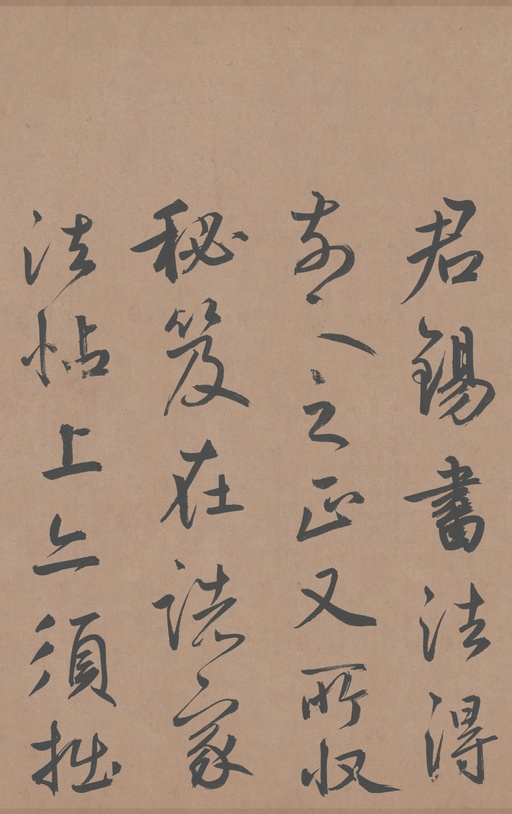 君錫書法得
前人之正又所收
秘笈在諸家
法帖上亦須拙